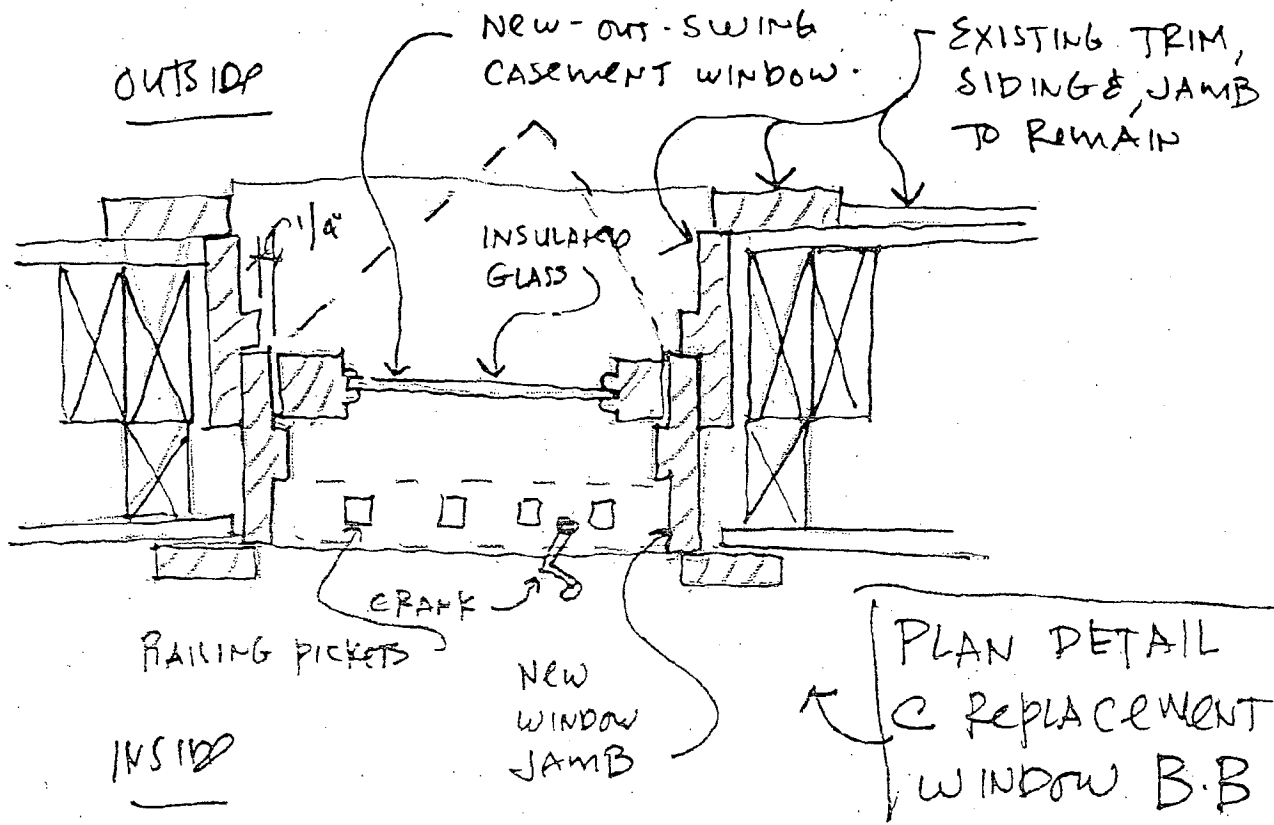 OUTSIDE
NEW-OUT-SWING
CASEMENT WINDOW.
EXISTING TRIM,
SIDING &, JAMB
TO REMAIN
1/4"
INSULATED
GLASS
CRANK
RAILING PICKETS
NEW
WINDOW
JAMB
INSIDE
PLAN DETAIL
C REPLACEMENT
WINDOW B.B